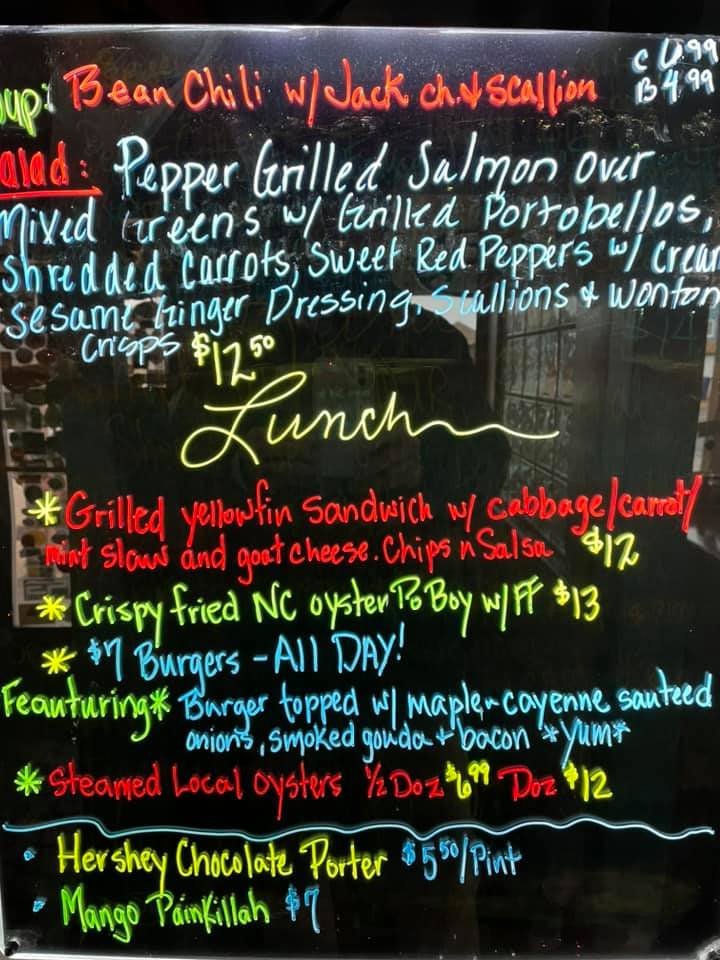 oup: Bean Chili w/ Jack ch. & scallion C 6.99
B 4.99
alad: Pepper Grilled Salmon over
Mixed Greens w/ Grilled Portobellos,
Shredded Carrots, Sweet Red Peppers w/ Cream
Sesame Ginger Dressing, Scallions & Wonton
Crisps $12.50
Lunch
* Grilled yellowfin Sandwich w/ cabbage/carrot/
mint slaw and goat cheese. Chips n Salsa $12
* Crispy fried NC oyster Po Boy w/ FF $13
* $7 Burgers - All DAY!
Feauturing* Burger topped w/ maple-cayenne sauteed
onions, smoked gouda + bacon *Yum*
* Steamed Local Oysters ½ Doz $6.99 Doz $12
• Hershey Chocolate Porter $5.50/Pint
• Mango Painkillah $7